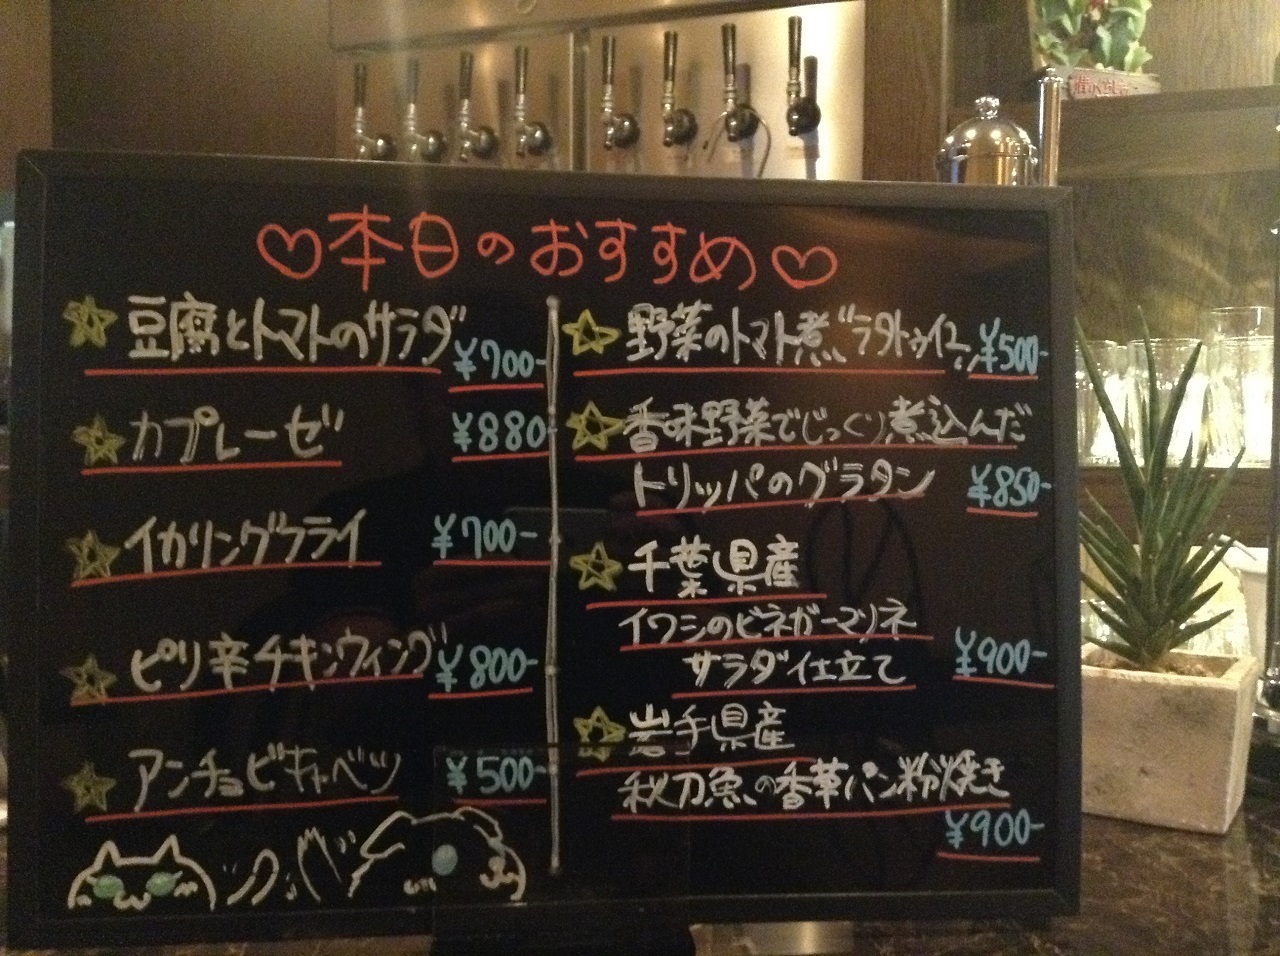 ♡本日のおすすめ♡
☆豆腐とトマトのサラダ ¥700-
☆カプレーゼ ¥880-
☆イカリングフライ ¥700-
☆ピリ辛チキンウィング ¥800-
☆アンチョビキャベツ ¥500-
☆野菜のトマト煮"ラタトゥイユ" ¥500-
☆香味野菜でじっくり煮込んだ
トリッパのグラタン ¥850-
☆千葉県産
イワシのビネガーマリネ
サラダ仕立て ¥900-
☆岩手県産
秋刀魚の香草パン粉焼き
¥900-